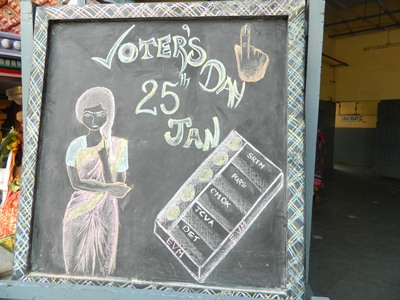 VOTER'S
DAY
25th
JAN
SRIM
PARO
CMOK
TCVA
DET
EVM